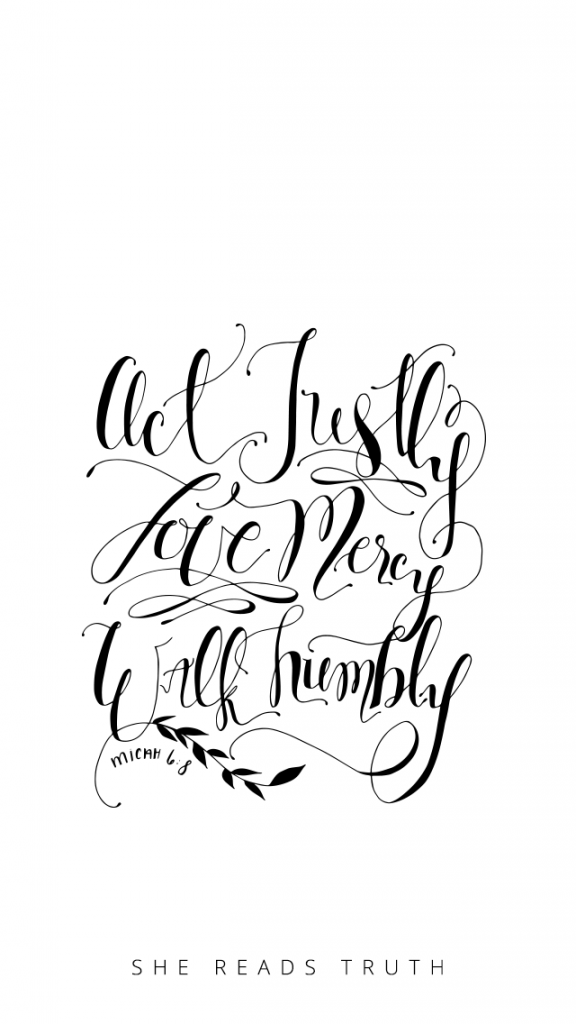 Act Justly
Love Mercy
Walk humbly
MICAH 6:8
SHE READS TRUTH